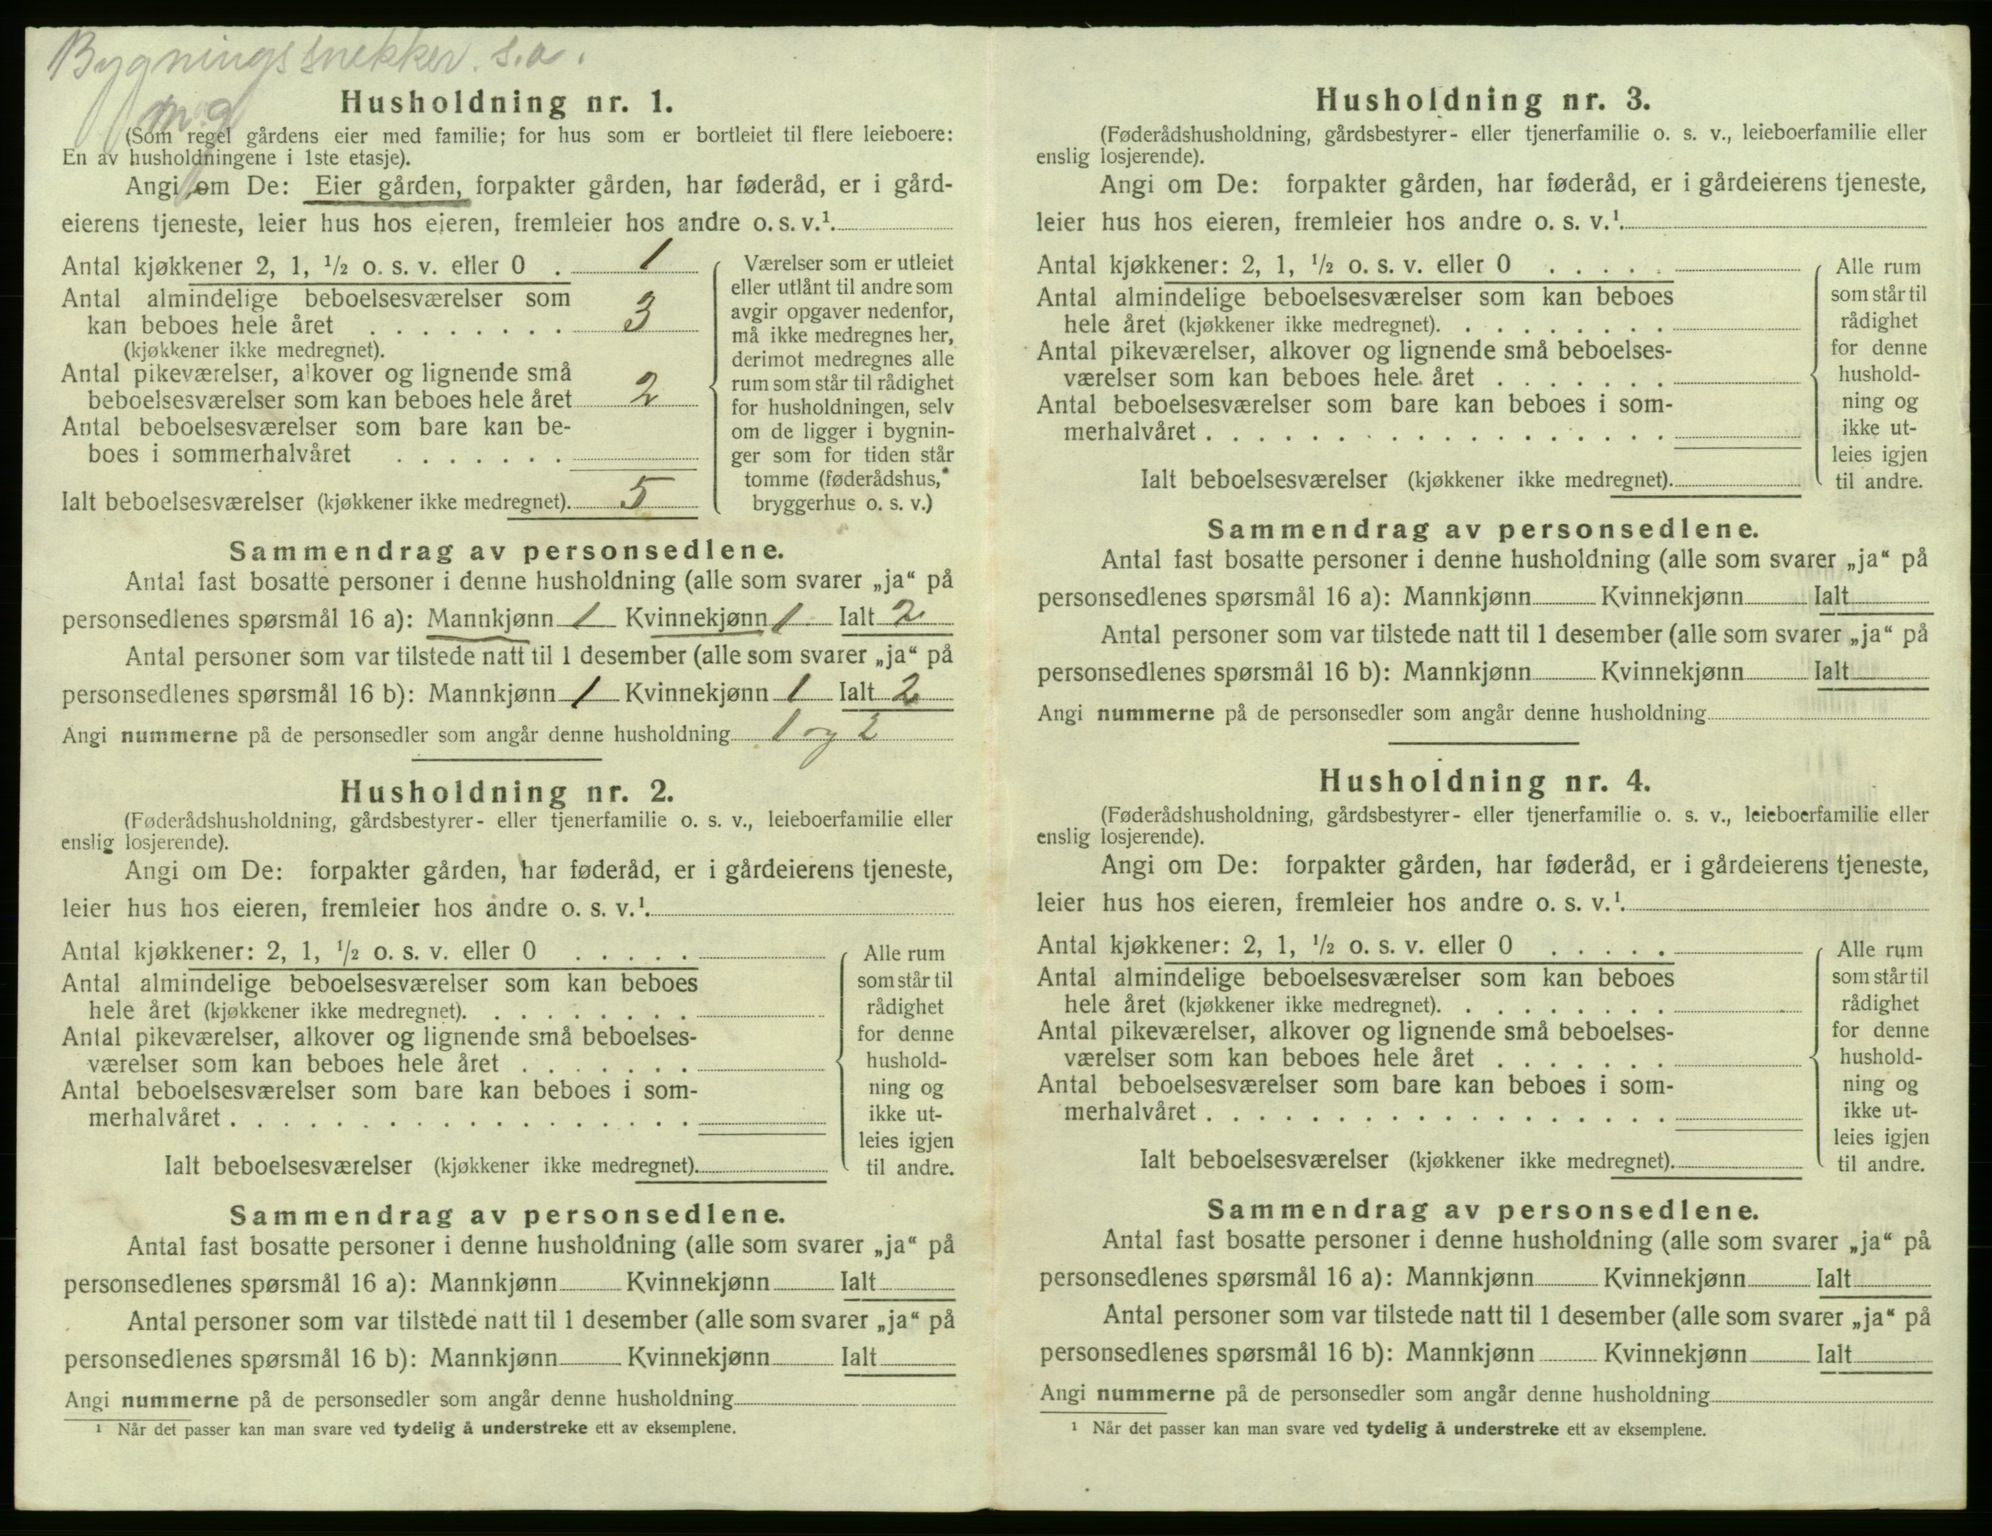 Bygningssnekker. s.a.
m g
Husholdning nr. 1.
(Som regel gårdens eier med familie; for hus som er bortleiet til flere leieboere:
En av husholdningene i 1ste etasje).
Angi om De: Eier gården, forpakter gården, har føderåd, er i gård-
eierens tjeneste, leier hus hos eieren, fremleier hos andre o. s. v.¹.
Antal kjøkkener 2, 1, ½ o. s. v. eller 0 . 1
Antal almindelige beboelsesværelser som
kan beboes hele året . . . . . . . . 3
(kjøkkener ikke medregnet).
Antal pikeværelser, alkover og lignende små
beboelsesværelser som kan beboes hele året 2
Antal beboelsesværelser som bare kan be-
boes i sommerhalvåret . . . . . . .
Ialt beboelsesværelser (kjøkkener ikke medregnet). 5
Værelser som er utleiet
eller utlånt til andre som
avgir opgaver nedenfor,
må ikke medregnes her,
derimot medregnes alle
rum som står til rådighet
for husholdningen, selv
om de ligger i bygnin-
ger som for tiden står
tomme (føderådshus,
bryggerhus o. s. v.)
Sammendrag av personsedlene.
Antal fast bosatte personer i denne husholdning (alle som svarer „ja“ på
personsedlenes spørsmål 16 a): Mannkjønn 1 Kvinnekjønn 1 Ialt 2
Antal personer som var tilstede natt til 1 desember (alle som svarer „ja“ på
personsedlenes spørsmål 16 b): Mannkjønn 1 Kvinnekjønn 1 Ialt 2
Angi nummerne på de personsedler som angår denne husholdning 1 og 2
Husholdning nr. 2.
(Føderådshusholdning, gårdsbestyrer- eller tjenerfamilie o. s. v., leieboerfamilie eller
enslig losjerende).
Angi om De: forpakter gården, har føderåd, er i gårdeierens tjeneste,
leier hus hos eieren, fremleier hos andre o. s. v.¹.
Antal kjøkkener: 2, 1, ½ o. s. v. eller 0 . . . . .
Antal almindelige beboelsesværelser som kan beboes
hele året (kjøkkener ikke medregnet). . . . . . . . .
Antal pikeværelser, alkover og lignende små beboelses-
værelser som kan beboes hele året . . . . . . .
Antal beboelsesværelser som bare kan beboes i som-
merhalvåret . . . . . . . . . . . . . . . . . .
Ialt beboelsesværelser (kjøkkener ikke medregnet).
Alle rum
som står til
rådighet
for denne
hushold-
ning og
ikke ut-
leies igjen
til andre.
Sammendrag av personsedlene.
Antal fast bosatte personer i denne husholdning (alle som svarer „ja“ på
personsedlenes spørsmål 16 a): Mannkjønn Kvinnekjønn Ialt
Antal personer som var tilstede natt til 1 desember (alle som svarer „ja“ på
personsedlenes spørsmål 16 b): Mannkjønn Kvinnekjønn Ialt
Angi nummerne på de personsedler som angår denne husholdning
¹ Når det passer kan man svare ved tydelig å understreke ett av eksemplene.
Husholdning nr. 3.
(Føderådshusholdning, gårdsbestyrer- eller tjenerfamilie o. s. v., leieboerfamilie eller
enslig losjerende).
Angi om De: forpakter gården, har føderåd, er i gårdeierens tjeneste,
leier hus hos eieren, fremleier hos andre o. s. v.¹.
Antal kjøkkener: 2, 1, ½ o. s. v. eller 0 . . . . .
Antal almindelige beboelsesværelser som kan beboes
hele året (kjøkkener ikke medregnet). . . . . . . . .
Antal pikeværelser, alkover og lignende små beboelses-
værelser som kan beboes hele året . . . . . . .
Antal beboelsesværelser som bare kan beboes i som-
merhalvåret . . . . . . . . . . . . . . . . . .
Ialt beboelsesværelser (kjøkkener ikke medregnet).
Alle rum
som står til
rådighet
for denne
hushold-
ning og
ikke ut-
leies igjen
til andre.
Sammendrag av personsedlene.
Antal fast bosatte personer i denne husholdning (alle som svarer „ja“ på
personsedlenes spørsmål 16 a): Mannkjønn Kvinnekjønn Ialt
Antal personer som var tilstede natt til 1 desember (alle som svarer „ja“ på
personsedlenes spørsmål 16 b): Mannkjønn Kvinnekjønn Ialt
Angi nummerne på de personsedler som angår denne husholdning
Husholdning nr. 4.
(Føderådshusholdning, gårdsbestyrer- eller tjenerfamilie o. s. v., leieboerfamilie eller
enslig losjerende).
Angi om De: forpakter gården, har føderåd, er i gårdeierens tjeneste,
leier hus hos eieren, fremleier hos andre o. s. v.¹.
Antal kjøkkener: 2, 1, ½ o. s. v. eller 0 . . . . .
Antal almindelige beboelsesværelser som kan beboes
hele året (kjøkkener ikke medregnet). . . . . . . . .
Antal pikeværelser, alkover og lignende små beboelses-
værelser som kan beboes hele året . . . . . . .
Antal beboelsesværelser som bare kan beboes i som-
merhalvåret . . . . . . . . . . . . . . . . . .
Ialt beboelsesværelser (kjøkkener ikke medregnet).
Alle rum
som står til
rådighet
for denne
hushold-
ning og
ikke ut-
leies igjen
til andre.
Sammendrag av personsedlene.
Antal fast bosatte personer i denne husholdning (alle som svarer „ja“ på
personsedlenes spørsmål 16 a): Mannkjønn Kvinnekjønn Ialt
Antal personer som var tilstede natt til 1 desember (alle som svarer „ja“ på
personsedlenes spørsmål 16 b): Mannkjønn Kvinnekjønn Ialt
Angi nummerne på de personsedler som angår denne husholdning
¹ Når det passer kan man svare ved tydelig å understreke ett av eksemplene.